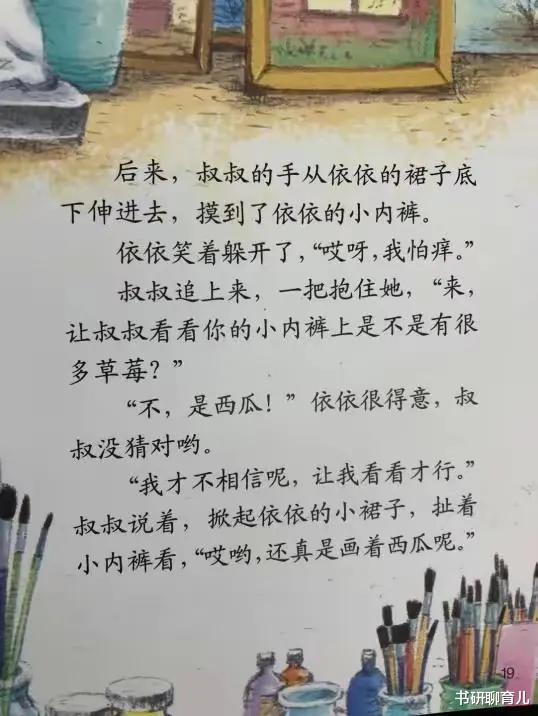 后来，叔叔的手从依依的裙子底
下伸进去，摸到了依依的小内裤。
依依笑着躲开了，“哎呀，我怕痒。”
叔叔追上来，一把抱住她，“来，
让叔叔看看你的小内裤上是不是有很
多草莓？”
“不，是西瓜！”依依很得意，叔
叔没猜对哟。
“我才不相信呢，让我看看才行。”
叔叔说着，掀起依依的小裙子，扯着
小内裤看，“哎哟，还真是画着西瓜呢。”
19
书研聊育儿